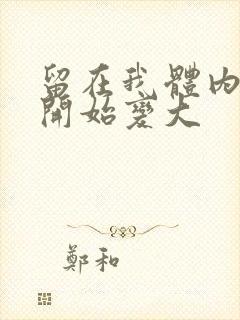 留在我體内
開始變大
鄭和